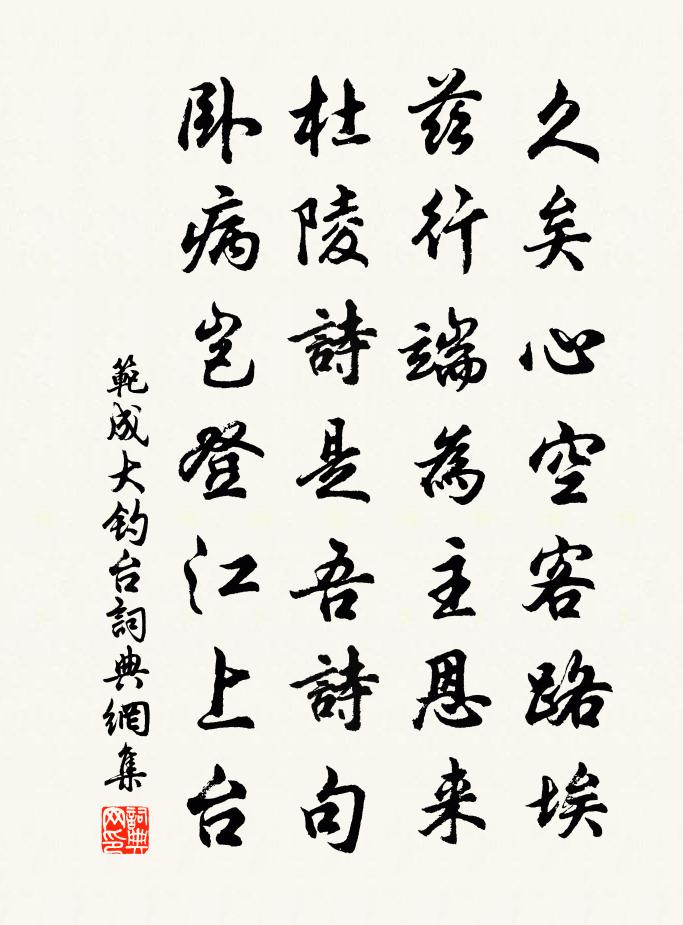 久矣心空客路埃
茲行端為主恩来
杜陵詩是吾詩句
卧病岂登江上台
範成大钓台詞典網集
詞典网印